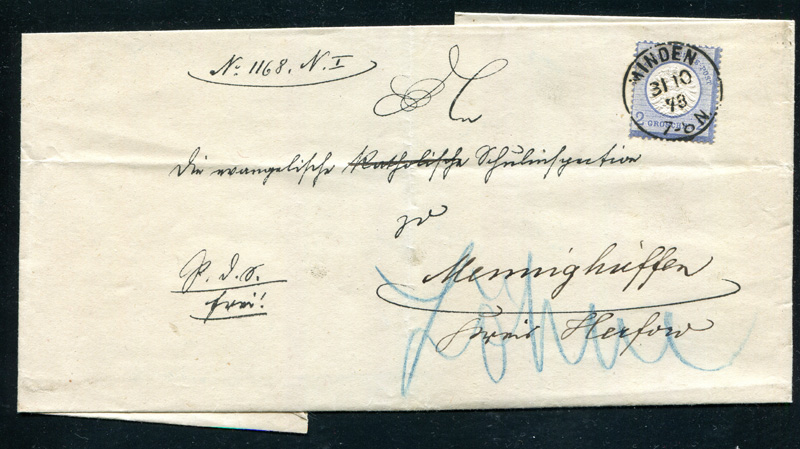 No 1168. N. I
An
die evangelische Katholische Schulinspection
zu
Mennighüffen
Kreis Herford
P. d. S.
frei!
Löhne
MINDEN
31 10
73
7-8 N
2 GROSCHEN
POST